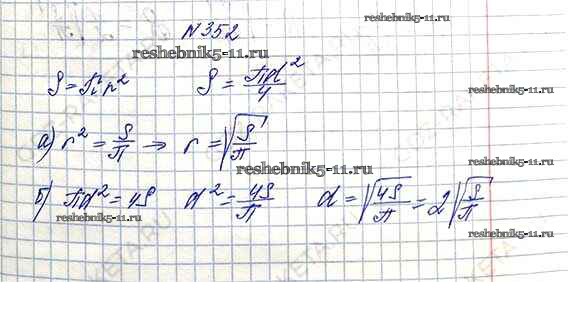 N352
reshebnik5-11.ru
S = πr² S = πd²/4
reshebnik5-11.ru
а) r² = S/π ⇒ r = √(S/π)
reshebnik5-11.ru
reshebnik5-11.ru
б) πd² = 4S d² = 4S/π d = √(4S/π) = 2√(S/π)
reshebnik5-11.ru
reshebnik5-11.ru